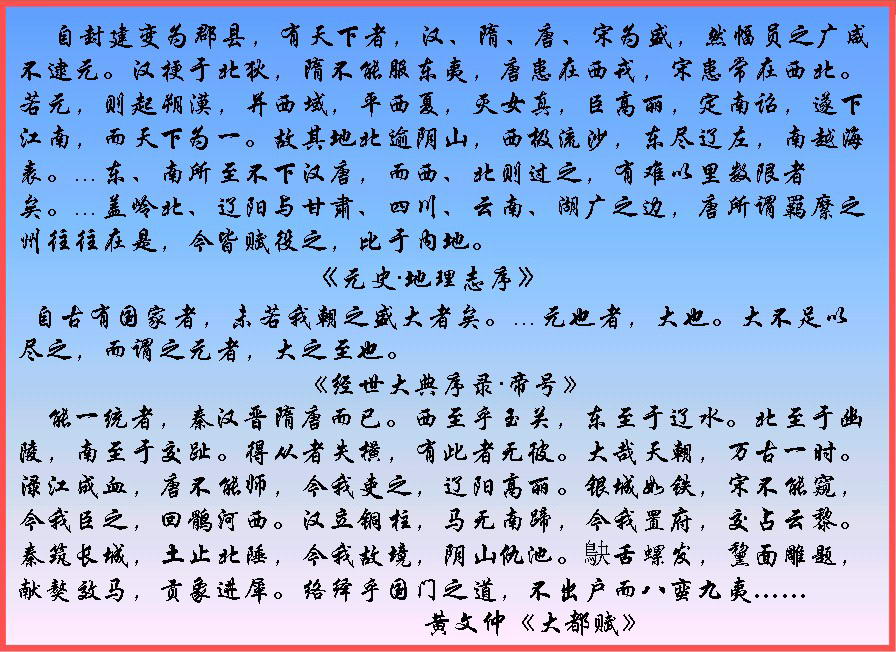 自封建变为郡县，有天下者，汉、隋、唐、宋为盛，然幅员之广咸
不逮元。汉梗于北狄，隋不能服东夷，唐患在西戎，宋患常在西北。
若元，则起朔漠，并西域，平西夏，灭女真，臣高丽，定南诏，遂下
江南，而天下为一。故其地北逾阴山，西极流沙，东尽辽左，南越海
表。…东、南所至不下汉唐，而西、北则过之，有难以里数限者
矣。…盖岭北、辽阳与甘肃、四川、云南、湖广之边，唐所谓羁縻之
州往往在是，今皆赋役之，比于内地。
《元史·地理志序》
自古有国家者，未若我朝之盛大者矣。…元也者，大也。大不足以
尽之，而谓之元者，大之至也。
《经世大典序录·帝号》
能一统者，秦汉晋隋唐而已。西至乎玉关，东至于辽水。北至于幽
陵，南至于交趾。得从者失横，有此者无彼。大哉天朝，万古一时。
渌江成血，唐不能师，今我吏之，辽阳高丽。银城如铁，宋不能窥，
今我臣之，回鹘河西。汉立铜柱，马无南蹄，今我置府，交占云黎。
秦筑长城，土止北陲，今我故境，阴山仇池。鴃舌螺发，黧面雕题，
献獒效马，贡象进犀。络绎乎国门之道，不出户而八蛮九夷……
黄文仲《大都赋》